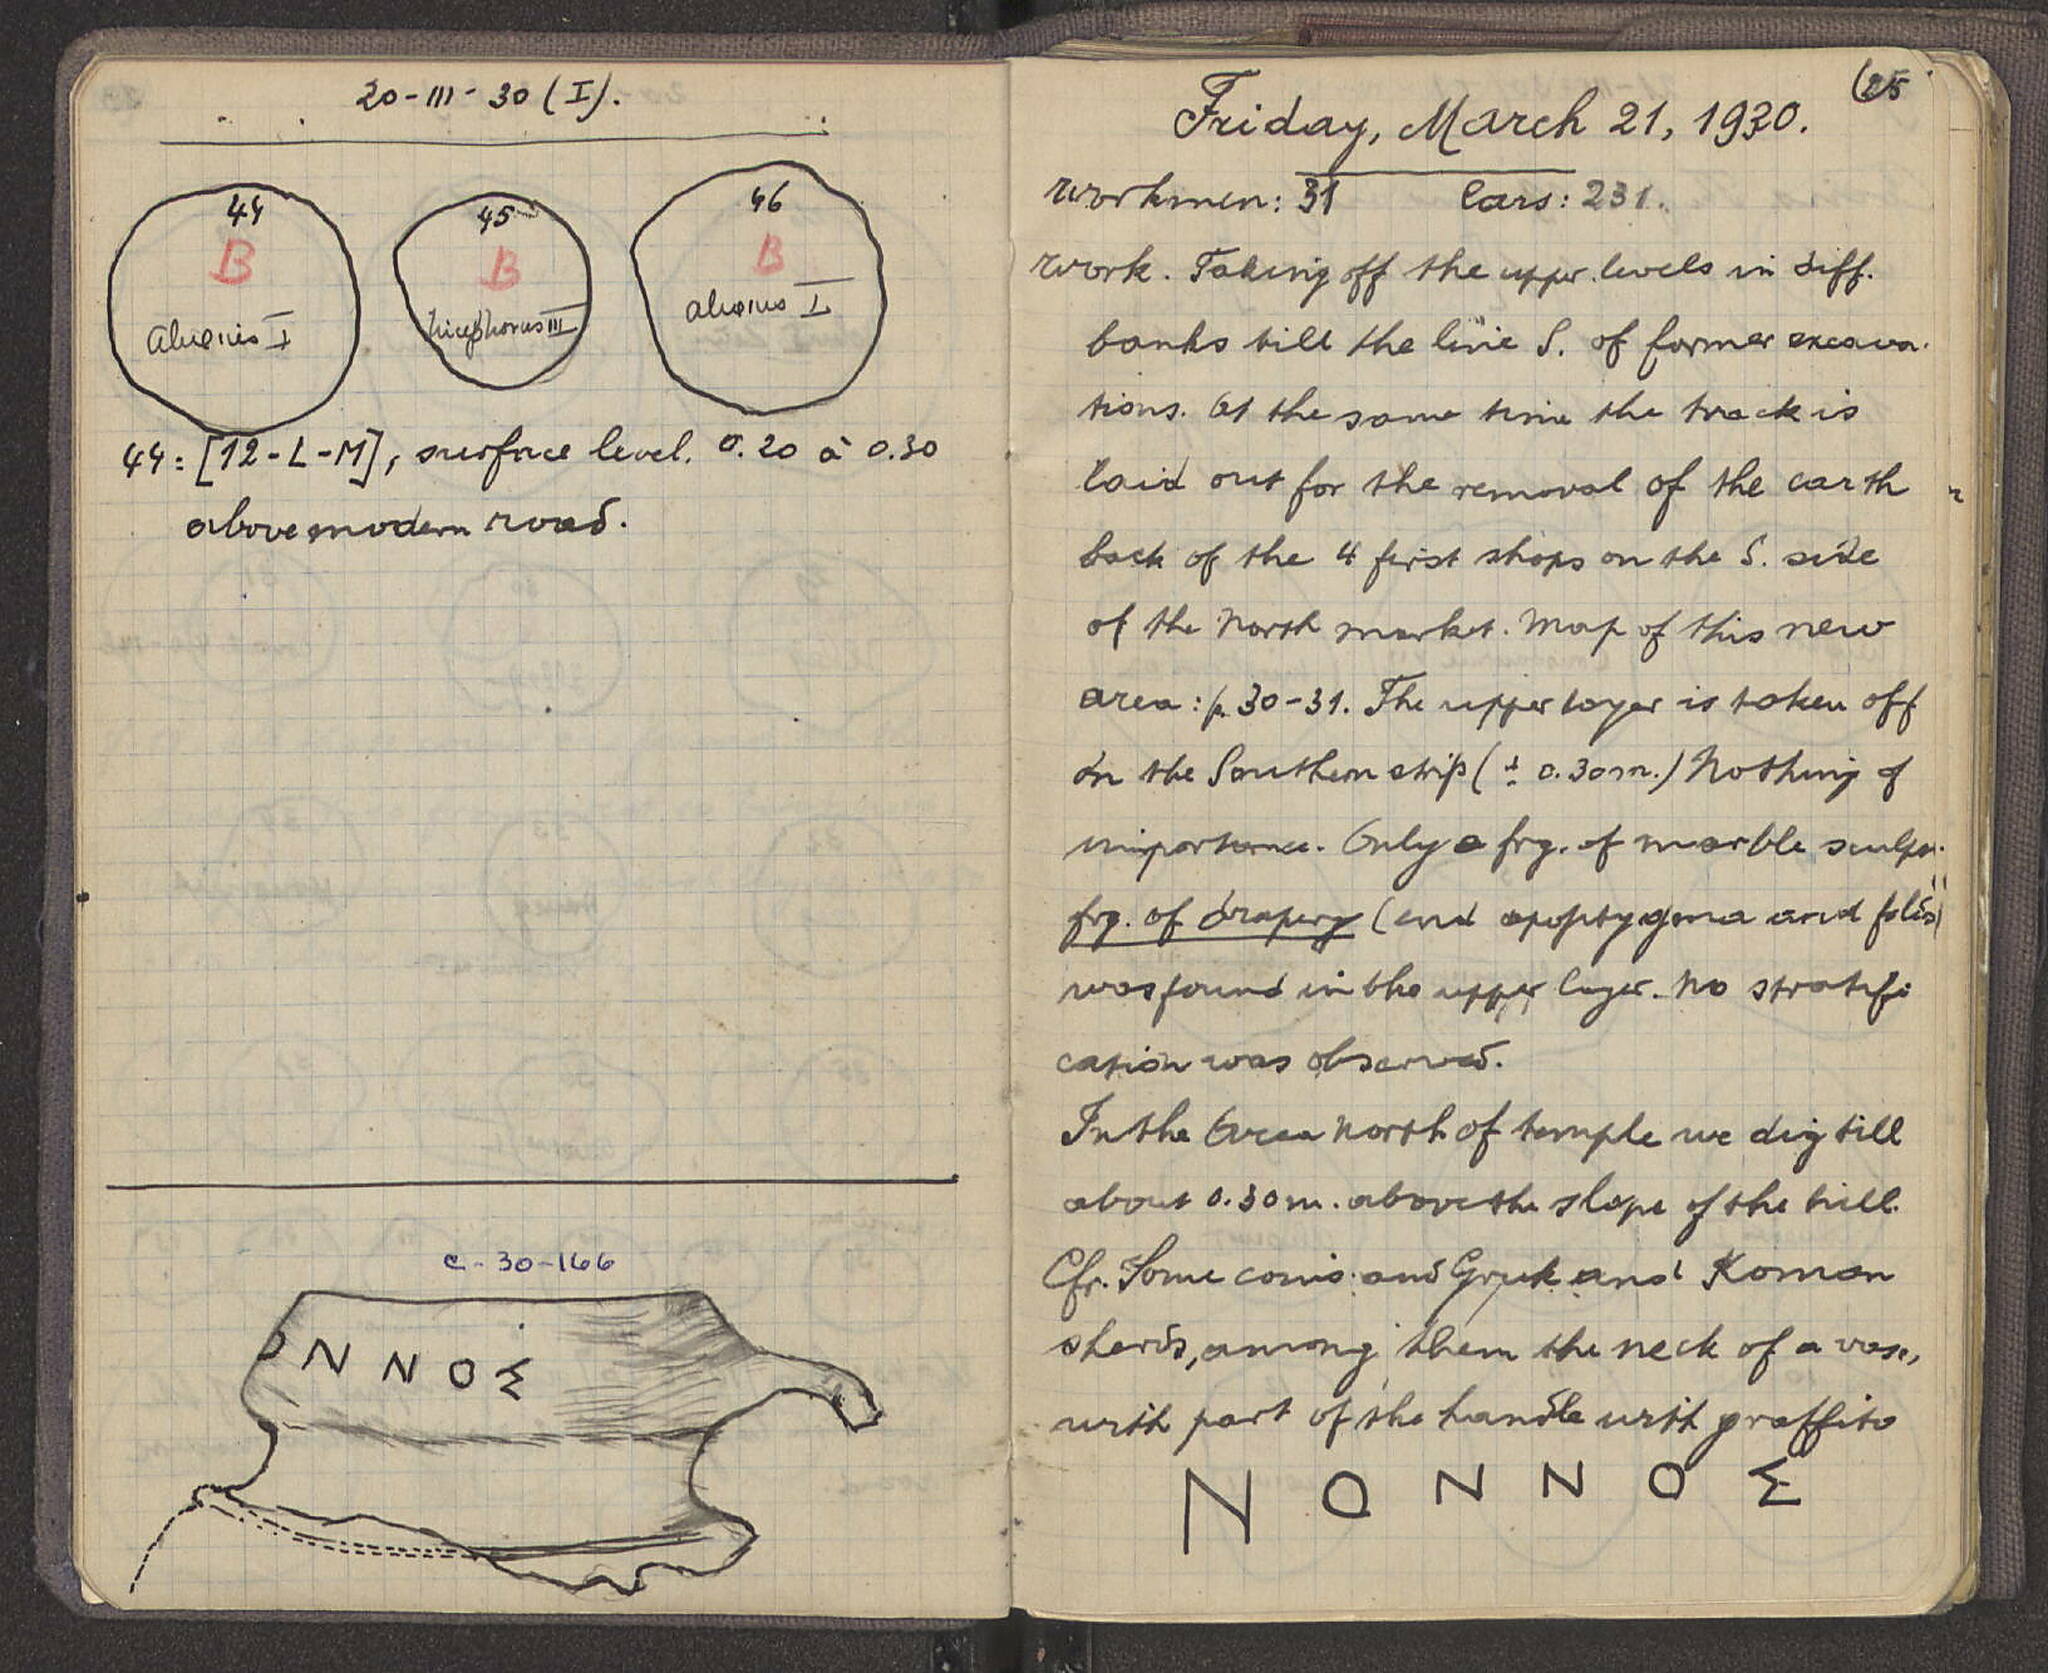 20-III-30 (I).
44
B
Alexius I
45
B
Nicephorus III
46
B
Alexius I
44: [12-L-M], surface level. 0.20 à 0.30
above modern road.
C-30-166
O N N O Σ
25
Friday, March 21, 1930.
Workmen: 31 Cars: 231.
Work. Taking off the upper levels in diff.
banks till the line S. of former excava-
tions. At the same time the track is
laid out for the removal of the earth
back of the 4 first shops on the S. side
of the North market. Map of this new
area: p. 30-31. The upper layer is taken off
in the Southern strip (± 0.30m.) Nothing of
importance. Only a frg. of marble sculpt.
frg. of drapery (end apoptygma and folds)
was found in the upper layer. No stratifi
cation was observed.
In the Area North of temple we dig till
about 0.30m. above the slope of the hill.
Cfr. Some coins and Greek and Roman
sherds, among them the neck of a vase,
with part of the handle with graffito
N O N N O Σ